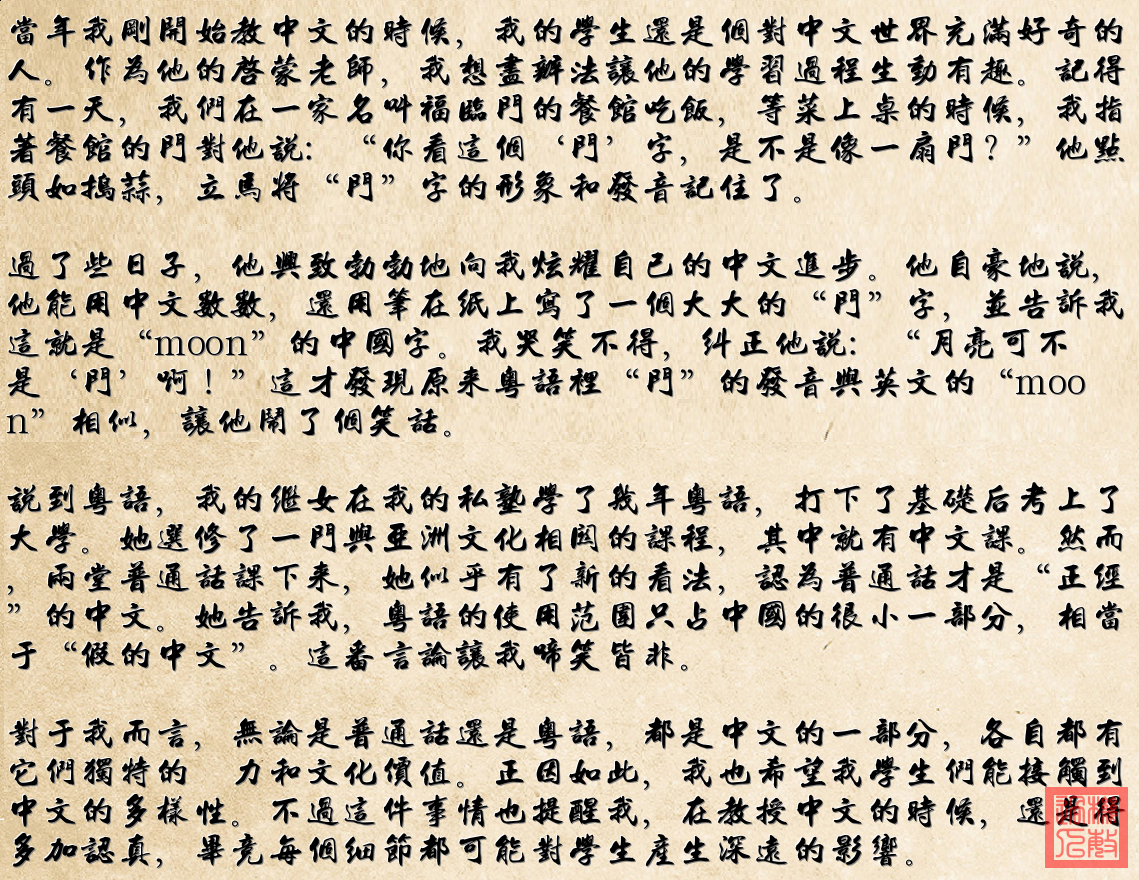 當年我剛開始教中文的時候，我的學生還是個對中文世界充滿好奇的
人。作為他的啓蒙老師，我想盡辦法讓他的學習過程生動有趣。記得
有一天，我們在一家名叫福臨門的餐館吃飯，等菜上桌的時候，我指
著餐館的門對他説：“你看這個‘門’字，是不是像一扇門？”他點
頭如搗蒜，立馬將“門”字的形象和發音記住了。
過了些日子，他興致勃勃地向我炫耀自己的中文進步。他自豪地説，
他能用中文數數，還用筆在紙上寫了一個大大的“門”字，並告訴我
這就是“moon”的中國字。我哭笑不得，糾正他説：“月亮可不
是‘門’啊！”這才發現原来粵語裡“門”的發音與英文的“moo
n”相似，讓他鬧了個笑話。
説到粵語，我的继女在我的私塾學了幾年粵語，打下了基礎后考上了
大學。她選修了一門與亞洲文化相関的課程，其中就有中文課。然而
，兩堂普通話課下来，她似乎有了新的看法，認為普通話才是“正經
”的中文。她告訴我，粵語的使用范圍只占中國的很小一部分，相當
于“假的中文”。這番言論讓我啼笑皆非。
對于我而言，無論是普通話還是粵語，都是中文的一部分，各自都有
它們獨特的　力和文化價值。正因如此，我也希望我學生們能接觸到
中文的多樣性。不過這件事情也提醒我，在教授中文的時候，還是得
多加認真，畢竟每個细節都可能對學生産生深遠的影響。